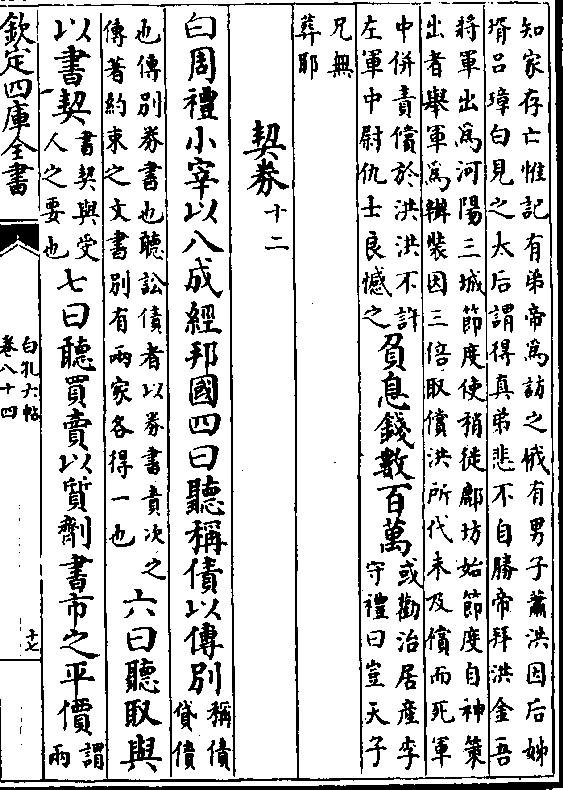 知家存亡惟記有弟帝為訪之俄有男子蕭洪因后姊
壻吕璋白見之太后謂得真弟悲不自勝帝拜洪金吾
將軍出為河陽三城節度使稍徙鄜坊始節度自神策
出者舉軍為辦裝因三倍取償洪所代未及償而死軍
中併責償於洪洪不許
左軍中尉仇士良憾之
負息錢數百萬
或勸治居産李
守禮曰豈天子
兄無
葬耶
契券十二
白周禮小宰以八成經邦國四曰聽稱債以傅別
稱債
貸債
也傅別券書也聽訟債者以券書責次之
傅著約束之文書別有兩家各得一也
六曰聽取與
以書契
書契與受
人之要也
七曰聽買賣以質劑書市之平價
謂
兩
欽定四庫全書
白孔六帖
卷八十四
十七